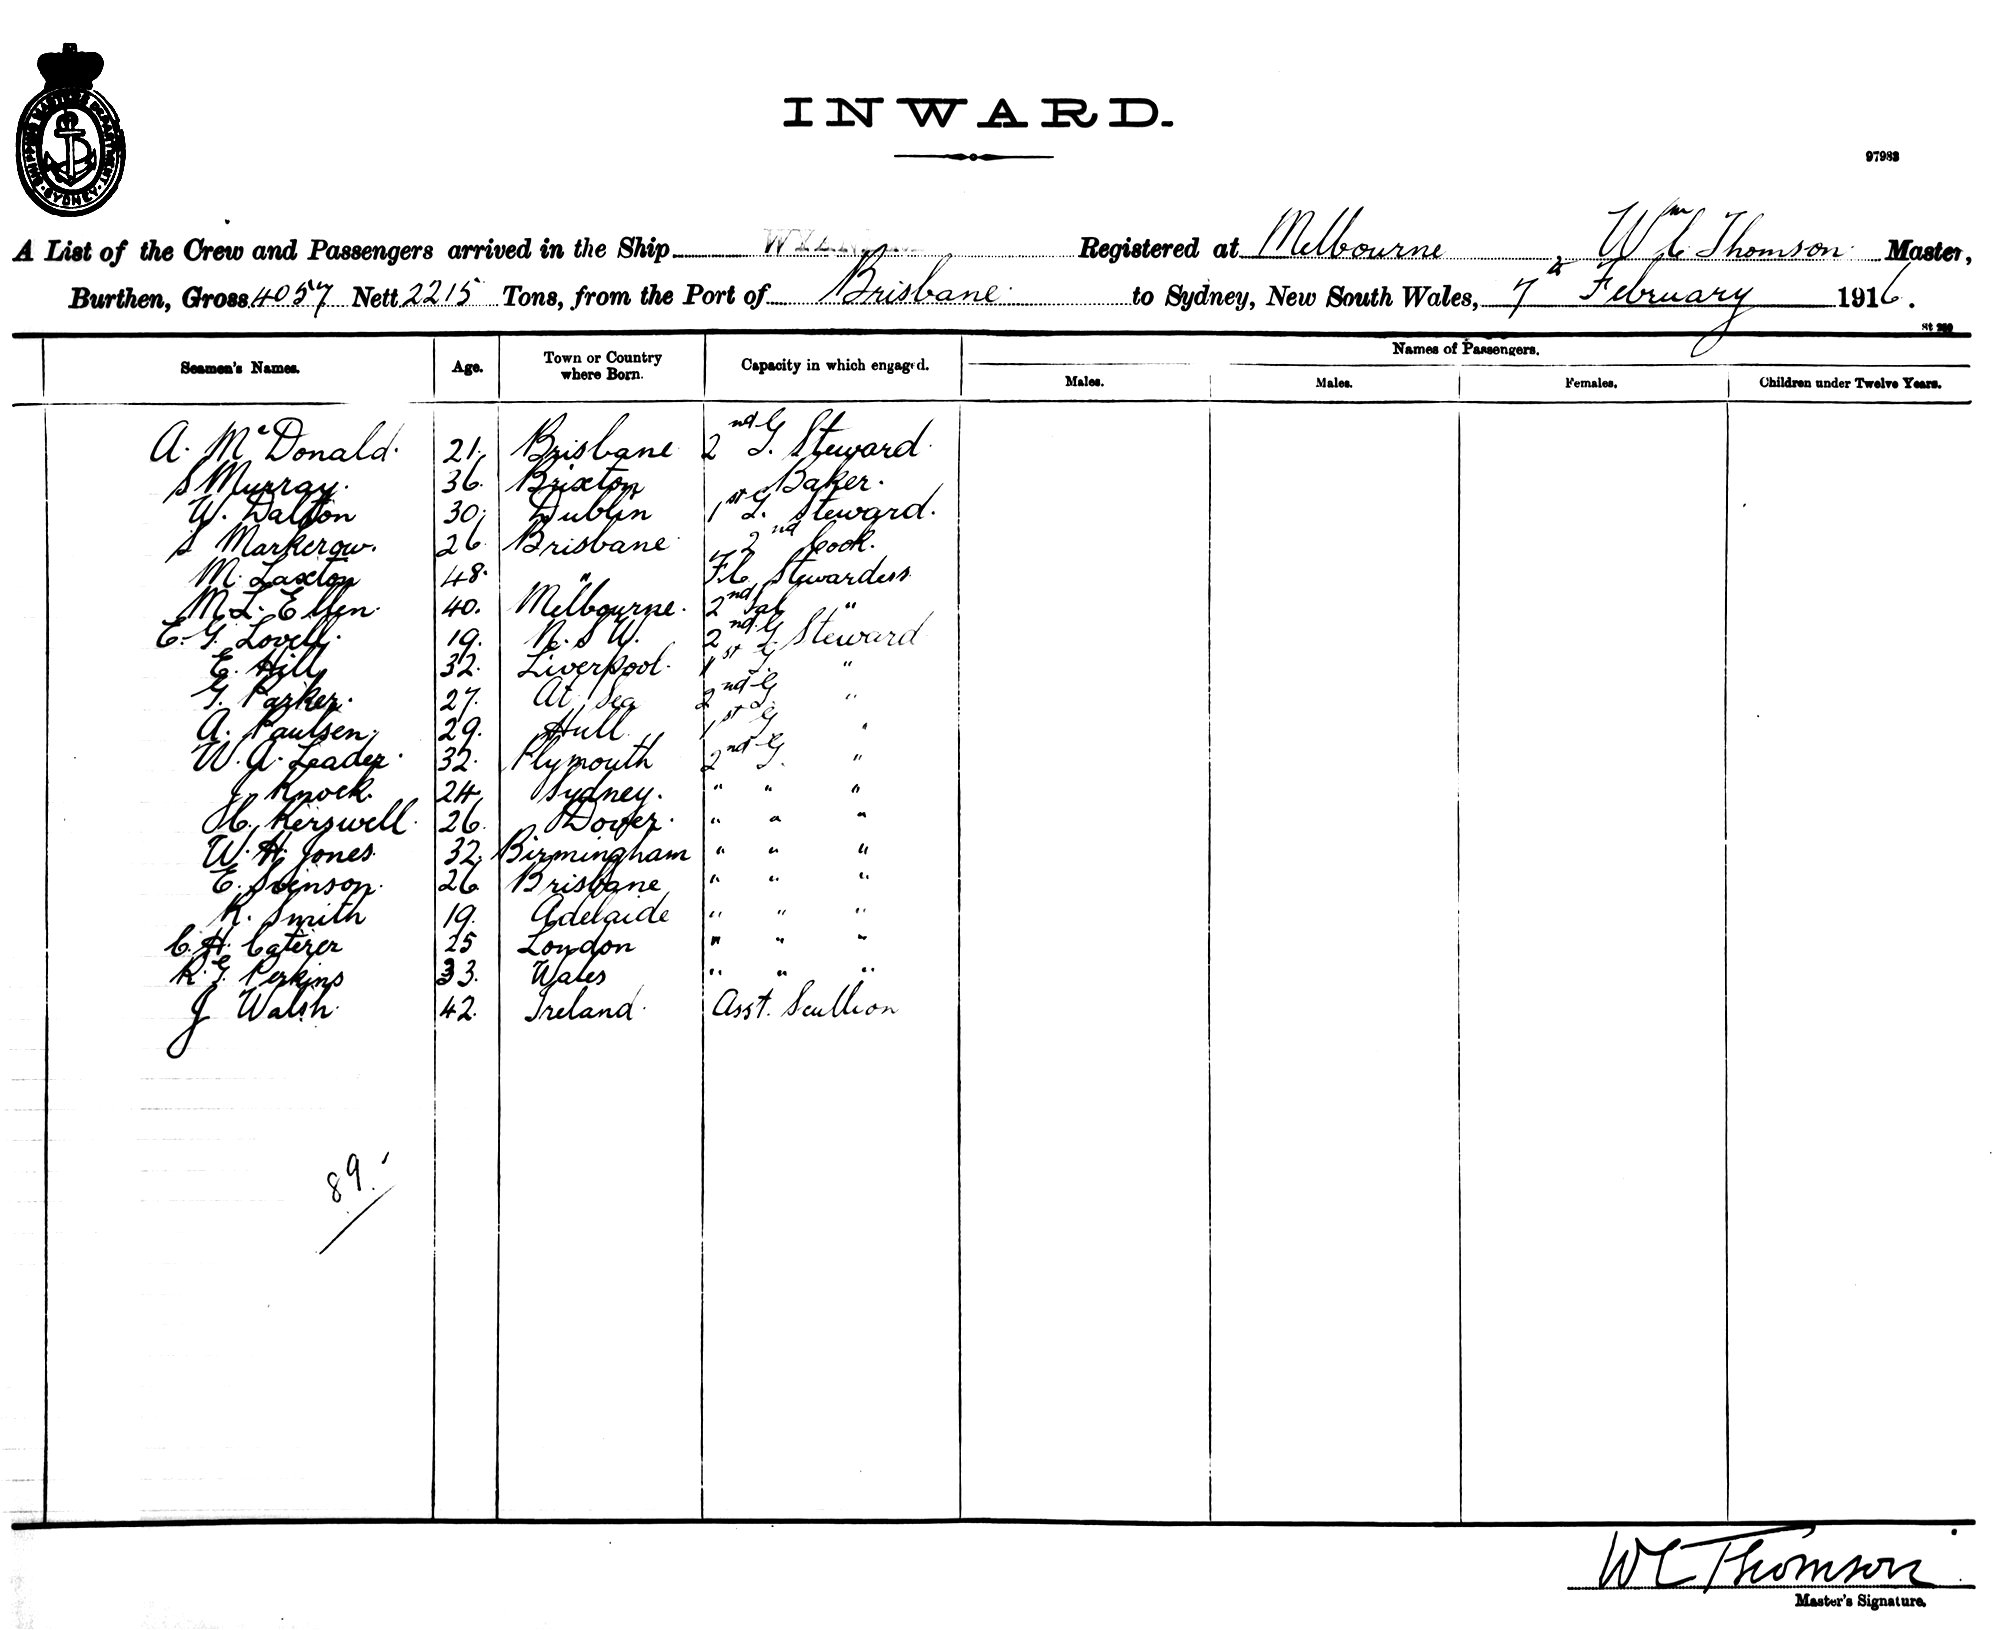 INWARD.
97983
A List of the Crew and Passengers arrived in the Ship Registered at Melbourne, Wm C Thomson Master,
Burthen, Gross 4057 Nett 2215 Tons, from the Port of Brisbane to Sydney, New South Wales, 7th February 1916.
Seamen's Names. Age. Town or Country where Born. Capacity in which engaged. Names of Passengers.
Males. Males. Females. Children under Twelve Years.
A. McDonald. 21. Brisbane 2nd G. Steward.
S Murray. 36. Brixton Baker.
W. Dalton 30. Dublin 1st G. Steward.
S Markerow. 26 Brisbane 2nd Cook.
M. Laxton 48. " F.C. Stewardess
M. L. Ellen. 40. Melbourne. 2nd Sal "
E. G. Lovell. 19. N.S.W. 2nd G. Steward
E. Hill 32. Liverpool. 1st G. "
G. Parker. 27. At Sea 2nd G. "
A. Paulsen. 29. Hull. 1st G. "
W. A. Leader. 32. Plymouth 2nd G. "
J Knock. 24. Sydney. " " "
H. Kerswell. 26. Dover. " " "
W. H. Jones. 32. Birmingham " " "
E. Svenson. 26 Brisbane " " "
R. Smith 19. Adelaide " " "
C. H. Caterer 25 London " " "
R. G. Perkins 33. Wales " " "
J Walsh. 42. Ireland. Asst. Scullion
89.
WC Thomson
Master's Signature.